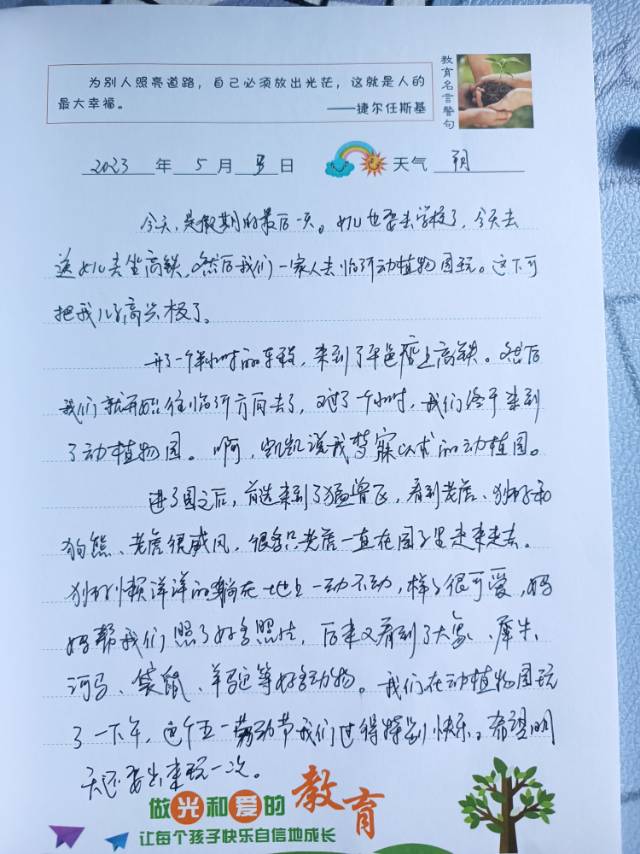 为别人照亮道路，自己必须放出光芒，这就是人的
最大幸福。
——捷尔任斯基
教育名言警句
2023 年 5 月 3 日 天气
今天，是假期的最后一天。也要去学校了，今天去
送去坐高铁，然后我们一家人去临沂动植物园玩。这下可
把我儿子高兴极了。
开了一个半小时的车程，来到了上高铁。然后
我们就开始往临沂方向去了，过了一个小时，我们终于来到
了动植物园。啊，凯凯说我梦寐以求的动植园。
进了园之后，首选来到了猛兽区，看到老虎、狮子和
狗熊、老虎很威风，很多只老虎一直在园子里走来走去。
狮子懒洋洋的躺在地上一动不动，样子很可爱，妈
妈帮我们照了好多照片，后来又看到了大象、犀牛、
河马、袋鼠、羊驼等好多动物。我们在动植物园玩
了一下午，这个五一劳动节我们过得特别快乐。希望明
天还要出来玩一次。
做光和爱的教育
让每个孩子快乐自信地成长